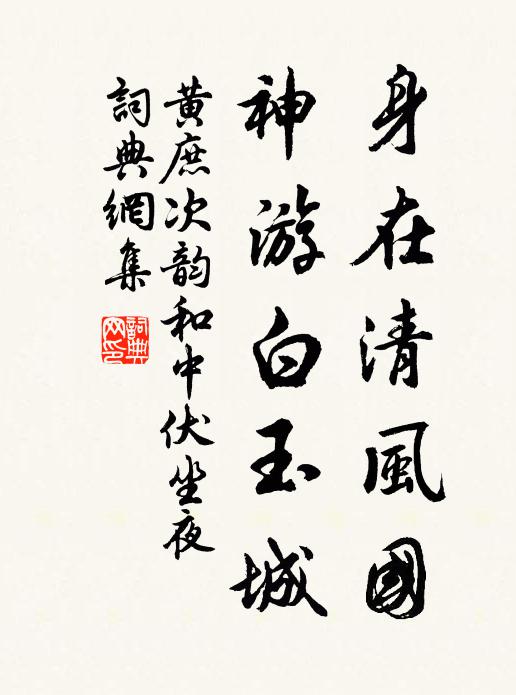 身在清風國
神游白玉城
黃庶次韵和中伏坐夜
詞典網集
詞典网印